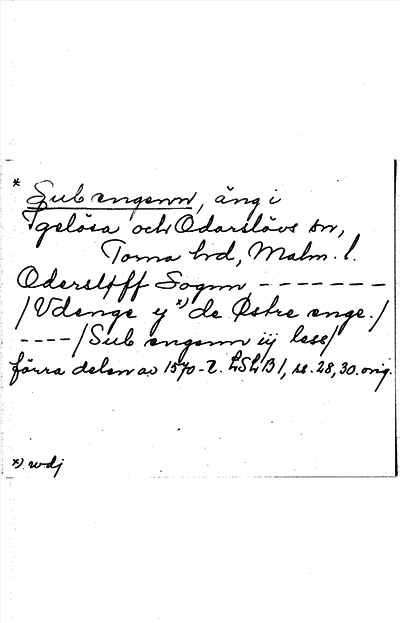 * Sub engenn, äng i
Igelösa och Odarslövs sn,
Torna hd, Malm. l.
Oderslöff Sognn - - - - - - -
/Vdenge y *) de Østre enge./
- - - - /Sub engenn iij less/
förra delen av 1570-t. LSLB 1, ss. 28, 30. orig.
*) wdj